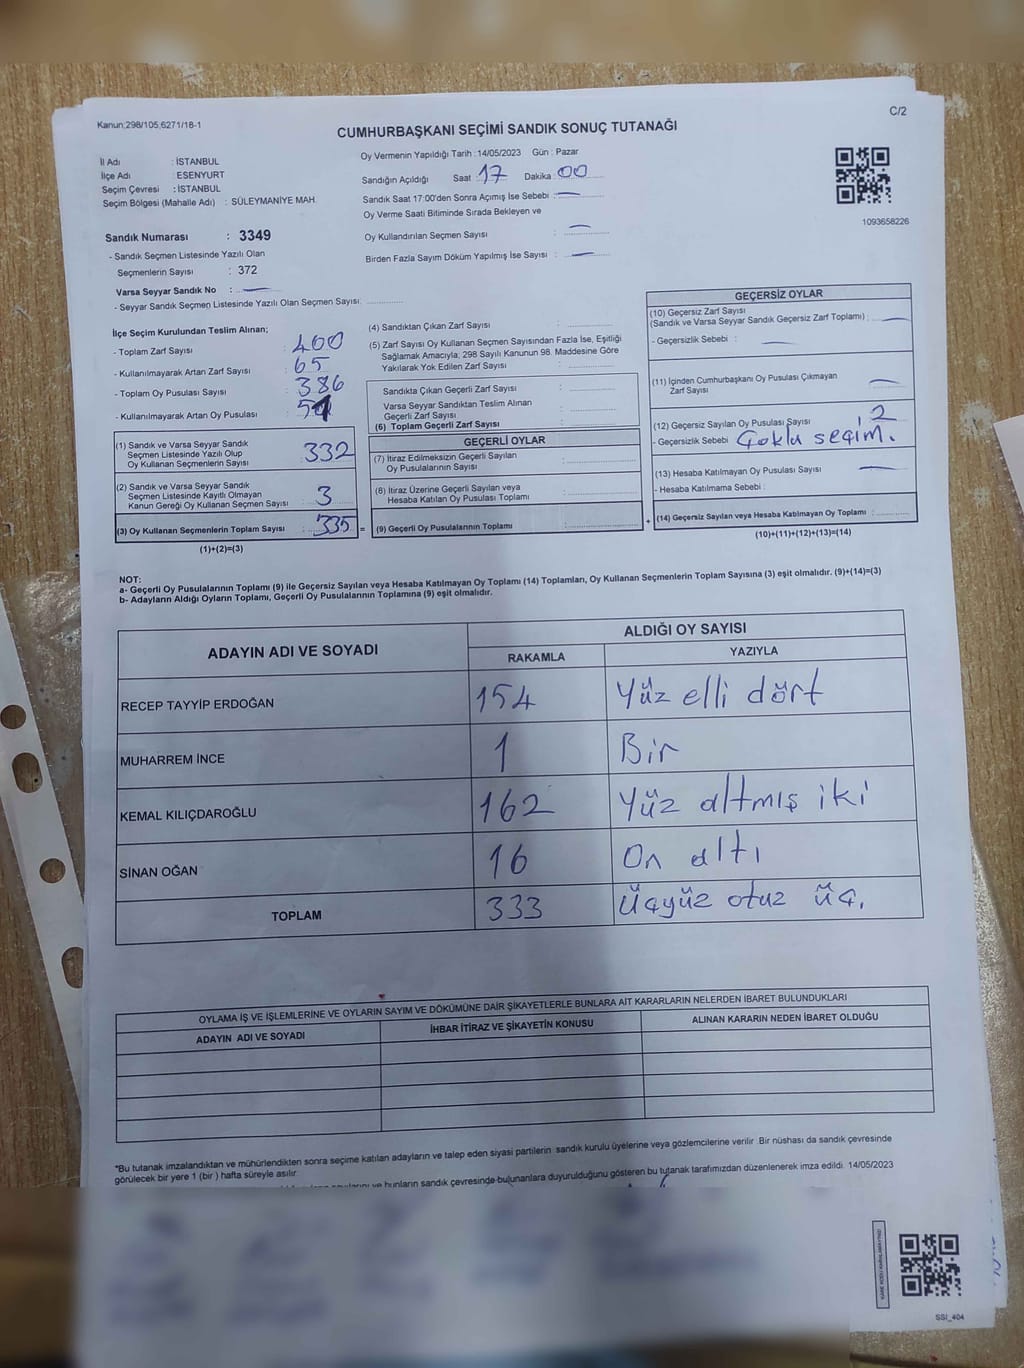 Kanun:298/105,6271/18-1
C/2
CUMHURBAŞKANI SEÇİMİ SANDIK SONUÇ TUTANAĞI
İl Adı : İSTANBUL
İlçe Adı : ESENYURT
Seçim Çevresi : İSTANBUL
Seçim Bölgesi (Mahalle Adı) : SÜLEYMANİYE MAH.
Oy Vermenin Yapıldığı Tarih :14/05/2023 Gün : Pazar
Sandığın Açıldığı Saat : 17 Dakika : 00
Sandık Saat 17:00'den Sonra Açımış İse Sebebi : —
Oy Verme Saati Bitiminde Sırada Bekleyen ve
Oy Kullandırılan Seçmen Sayısı : —
Birden Fazla Sayım Döküm Yapılmış İse Sayısı : —
1093658226
Sandık Numarası : 3349
- Sandık Seçmen Listesinde Yazılı Olan
Seçmenlerin Sayısı : 372
Varsa Seyyar Sandık No : —
- Seyyar Sandık Listesinde Yazılı Olan Seçmen Sayısı:
İlçe Seçim Kurulundan Teslim Alınan;
- Toplam Zarf Sayısı : 400
- Kullanılmayarak Artan Zarf Sayısı : 65
- Toplam Oy Pusulası Sayısı : 386
- Kullanılmayarak Artan Oy Pusulası :
(1) Sandık ve Varsa Seyyar Sandık
Seçmen Listesinde Yazılı Olup
Oy Kullanan Seçmenlerin Sayısı : 332
(2) Sandık ve Varsa Seyyar Sandık
Seçmen Listesinde Kayıtlı Olmayan
Kanun Gereği Oy Kullanan Seçmen Sayısı : 3
(3) Oy Kullanan Seçmenlerin Toplam Sayısı : 335 =
(1)+(2)=(3)
(4) Sandıktan Çıkan Zarf Sayısı :
(5) Zarf Sayısı Oy Kullanan Seçmen Sayısından Fazla İse, Eşitliği
Sağlamak Amacıyla; 298 Sayılı Kanunun 98. Maddesine Göre
Yakılarak Yok Edilen Zarf Sayısı :
Sandıkta Çıkan Geçerli Zarf Sayısı :
Varsa Seyyar Sandıktan Teslim Alınan
Geçerli Zarf Sayısı :
(6) Toplam Geçerli Zarf Sayısı :
GEÇERLİ OYLAR
(7) İtiraz Edilmeksizin Geçerli Sayılan
Oy Pusulalarının Sayısı :
(8) İtiraz Üzerine Geçerli Sayılan veya
Hesaba Katılan Oy Pusulası Toplamı :
(9) Geçerli Oy Pusulalarının Toplamı : +
GEÇERSİZ OYLAR
(10) Geçersiz Zarf Sayısı
(Sandık ve Varsa Seyyar Sandık Geçersiz Zarf Toplamı) : —
- Geçersizlik Sebebi : —
(11) İçinden Cumhurbaşkanı Oy Pusulası Çıkmayan
Zarf Sayısı : —
(12) Geçersiz Sayılan Oy Pusulası Sayısı : 2
- Geçersizlik Sebebi : Çoklu seçim.
(13) Hesaba Katılmayan Oy Pusulası Sayısı : —
- Hesaba Katılmama Sebebi :
(14) Geçersiz Sayılan veya Hesaba Katılmayan Oy Toplamı :
(10)+(11)+(12)+(13)=(14)
NOT:
a- Geçerli Oy Pusulalarının Toplamı (9) ile Geçersiz Sayılan veya Hesaba Katılmayan Oy Toplamı (14) Toplamları, Oy Kullanan Seçmenlerin Toplam Sayısına (3) eşit olmalıdır. (9)+(14)=(3)
b- Adayların Aldığı Oyların Toplamı, Geçerli Oy Pusulalarının Toplamına (9) eşit olmalıdır.
ADAYIN ADI VE SOYADI ALDIĞI OY SAYISI
RAKAMLA YAZIYLA
RECEP TAYYİP ERDOĞAN 154 Yüz elli dört
MUHARREM İNCE 1 Bir
KEMAL KILIÇDAROĞLU 162 Yüz altmış iki
SİNAN OĞAN 16 On altı
TOPLAM 333 Üçyüz otuz üç.
OYLAMA İŞ VE İŞLEMLERİNE VE OYLARIN SAYIM VE DÖKÜMÜNE DAİR ŞİKAYETLERLE BUNLARA AİT KARARLARIN NELERDEN İBARET BULUNDUKLARI
ADAYIN ADI VE SOYADI İHBAR İTİRAZ VE ŞİKAYETİN KONUSU ALINAN KARARIN NEDEN İBARET OLDUĞU
*Bu tutanak imzalandıktan ve mühürlendikten sonra seçime katılan adayların ve talep eden siyasi partilerin sandık kurulu üyelerine veya gözlemcilerine verilir. Bir nüshası da sandık çevresinde
görülecek bir yere 1 (bir ) hafta süreyle asılır.
ve bunların sandık çevresinde bulunanlara duyurulduğunu gösteren bu tutanak tarafımızdan düzenlenerek imza edildi. 14/05/2023
SSI_404